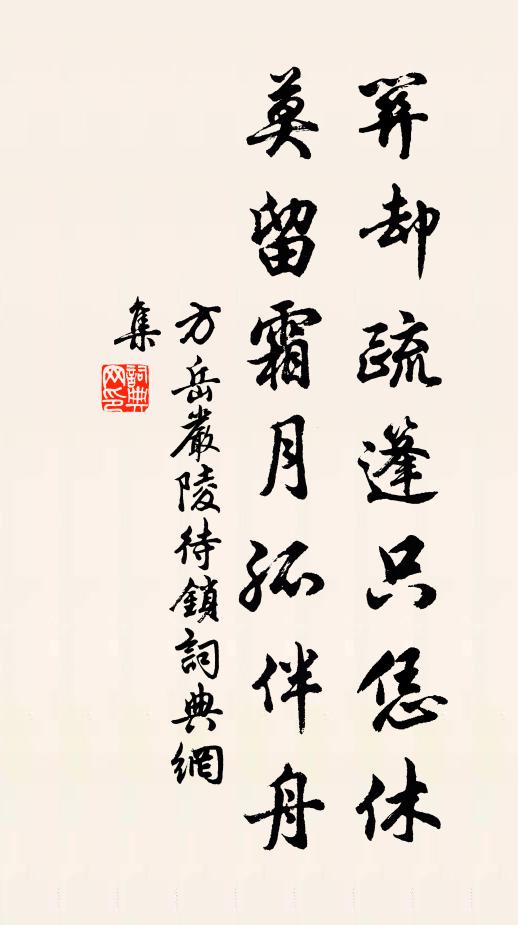 弄却疏篷只恁休
莫留霜月孤伴舟
方岳嚴陵待鎖詞典網
集
詞典网印